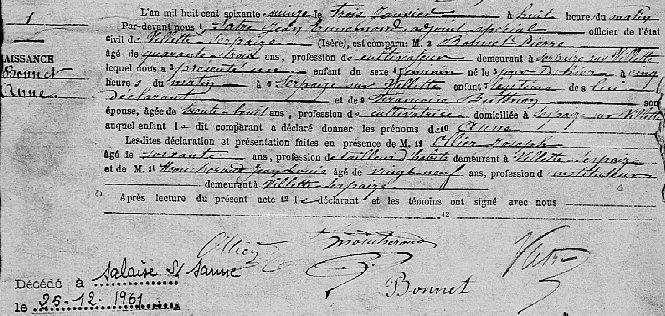 1
NAISSANCE
Bonnet
Anne
L'an mil huit cent soixante quinze le trois Janvier à huit heures du matin
Par-devant nous Jean adjoint spécial officier de l'état
civil de Villette Serpaize (Isère), est comparu M. 2 Bonnet Pierre
âgé de quarante trois ans, profession de cultivateur demeurant à Serpaize sur Villette
lequel nous a 3 présenté un enfant du sexe 4 féminin né le jour D'hier à cinq
heures du matin à 6 Serpaize sur Villette enfant légitime de lui
déclarant et de Françoise son
épouse, âgée de trente huit ans, profession de cultivatrice domiciliée à Serpaize sur Villette
auquel enfant le dit comparant a déclaré donner les prénoms de 10 Anne
Lesdites déclaration et présentation faites en présence de M. 11 Ollier Joseph
âgé de soixante ans, profession de tailleur d'habits demeurant à Villette Serpaize
et de M. 11 Jean Louis âgé de vingt neuf ans, profession d'instituteur
demeurant à Villette Serpaize
Après lecture du présent acte 12 le déclarant et les témoins ont signé avec nous
42
Ollier
Bonnet
Décédé à Salaise S/ Sanne
le 25-12-1961